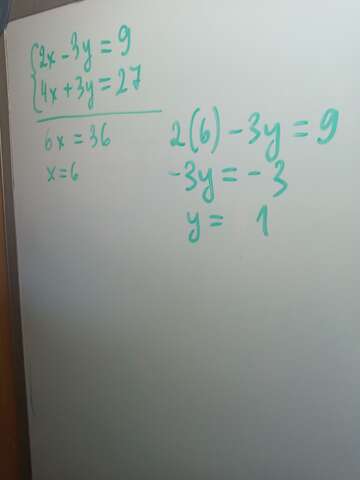 2x - 3y = 9
4x + 3y = 27
6x = 36
x = 6
2(6) - 3y = 9
-3y = -3
y = 1